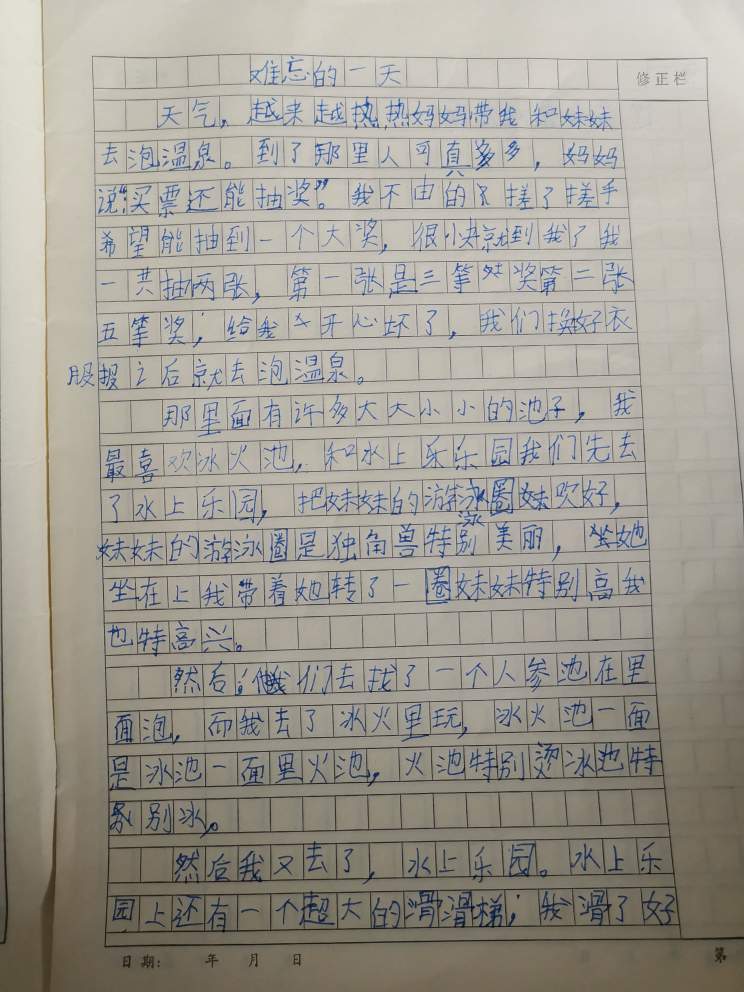 难忘的一天
修正栏
天气，越来越热热妈妈带我和妹妹
去泡温泉。到了那里人可真多多，妈妈
说“买票还能抽奖”。我不由的又搓了搓手
希望能抽到一个大奖，很快就到我了我
一共抽两张，第一张是三等奖第二张
五等奖；给我开心坏了，我们换好衣
服之后就去泡温泉。
那里面有许多大大小小的池子，我
最喜欢冰火池，和水上乐乐园我们先去
了水上乐园，把妹妹的游泳圈妹吹好，
妹妹的游泳圈是独角兽特别美丽，她
坐在上我带着她转了一圈妹妹特别高我
也特高兴。
然后，我们去找了一个人参池在里
面泡，而我去了冰火里玩，冰火池一面
是冰池一面里火池，火池特别烫冰池特
别冰。
然后我又去了，水上乐园。水上乐
园上还有一个超大的滑滑梯；我滑了好
日期： 年 月 日
第